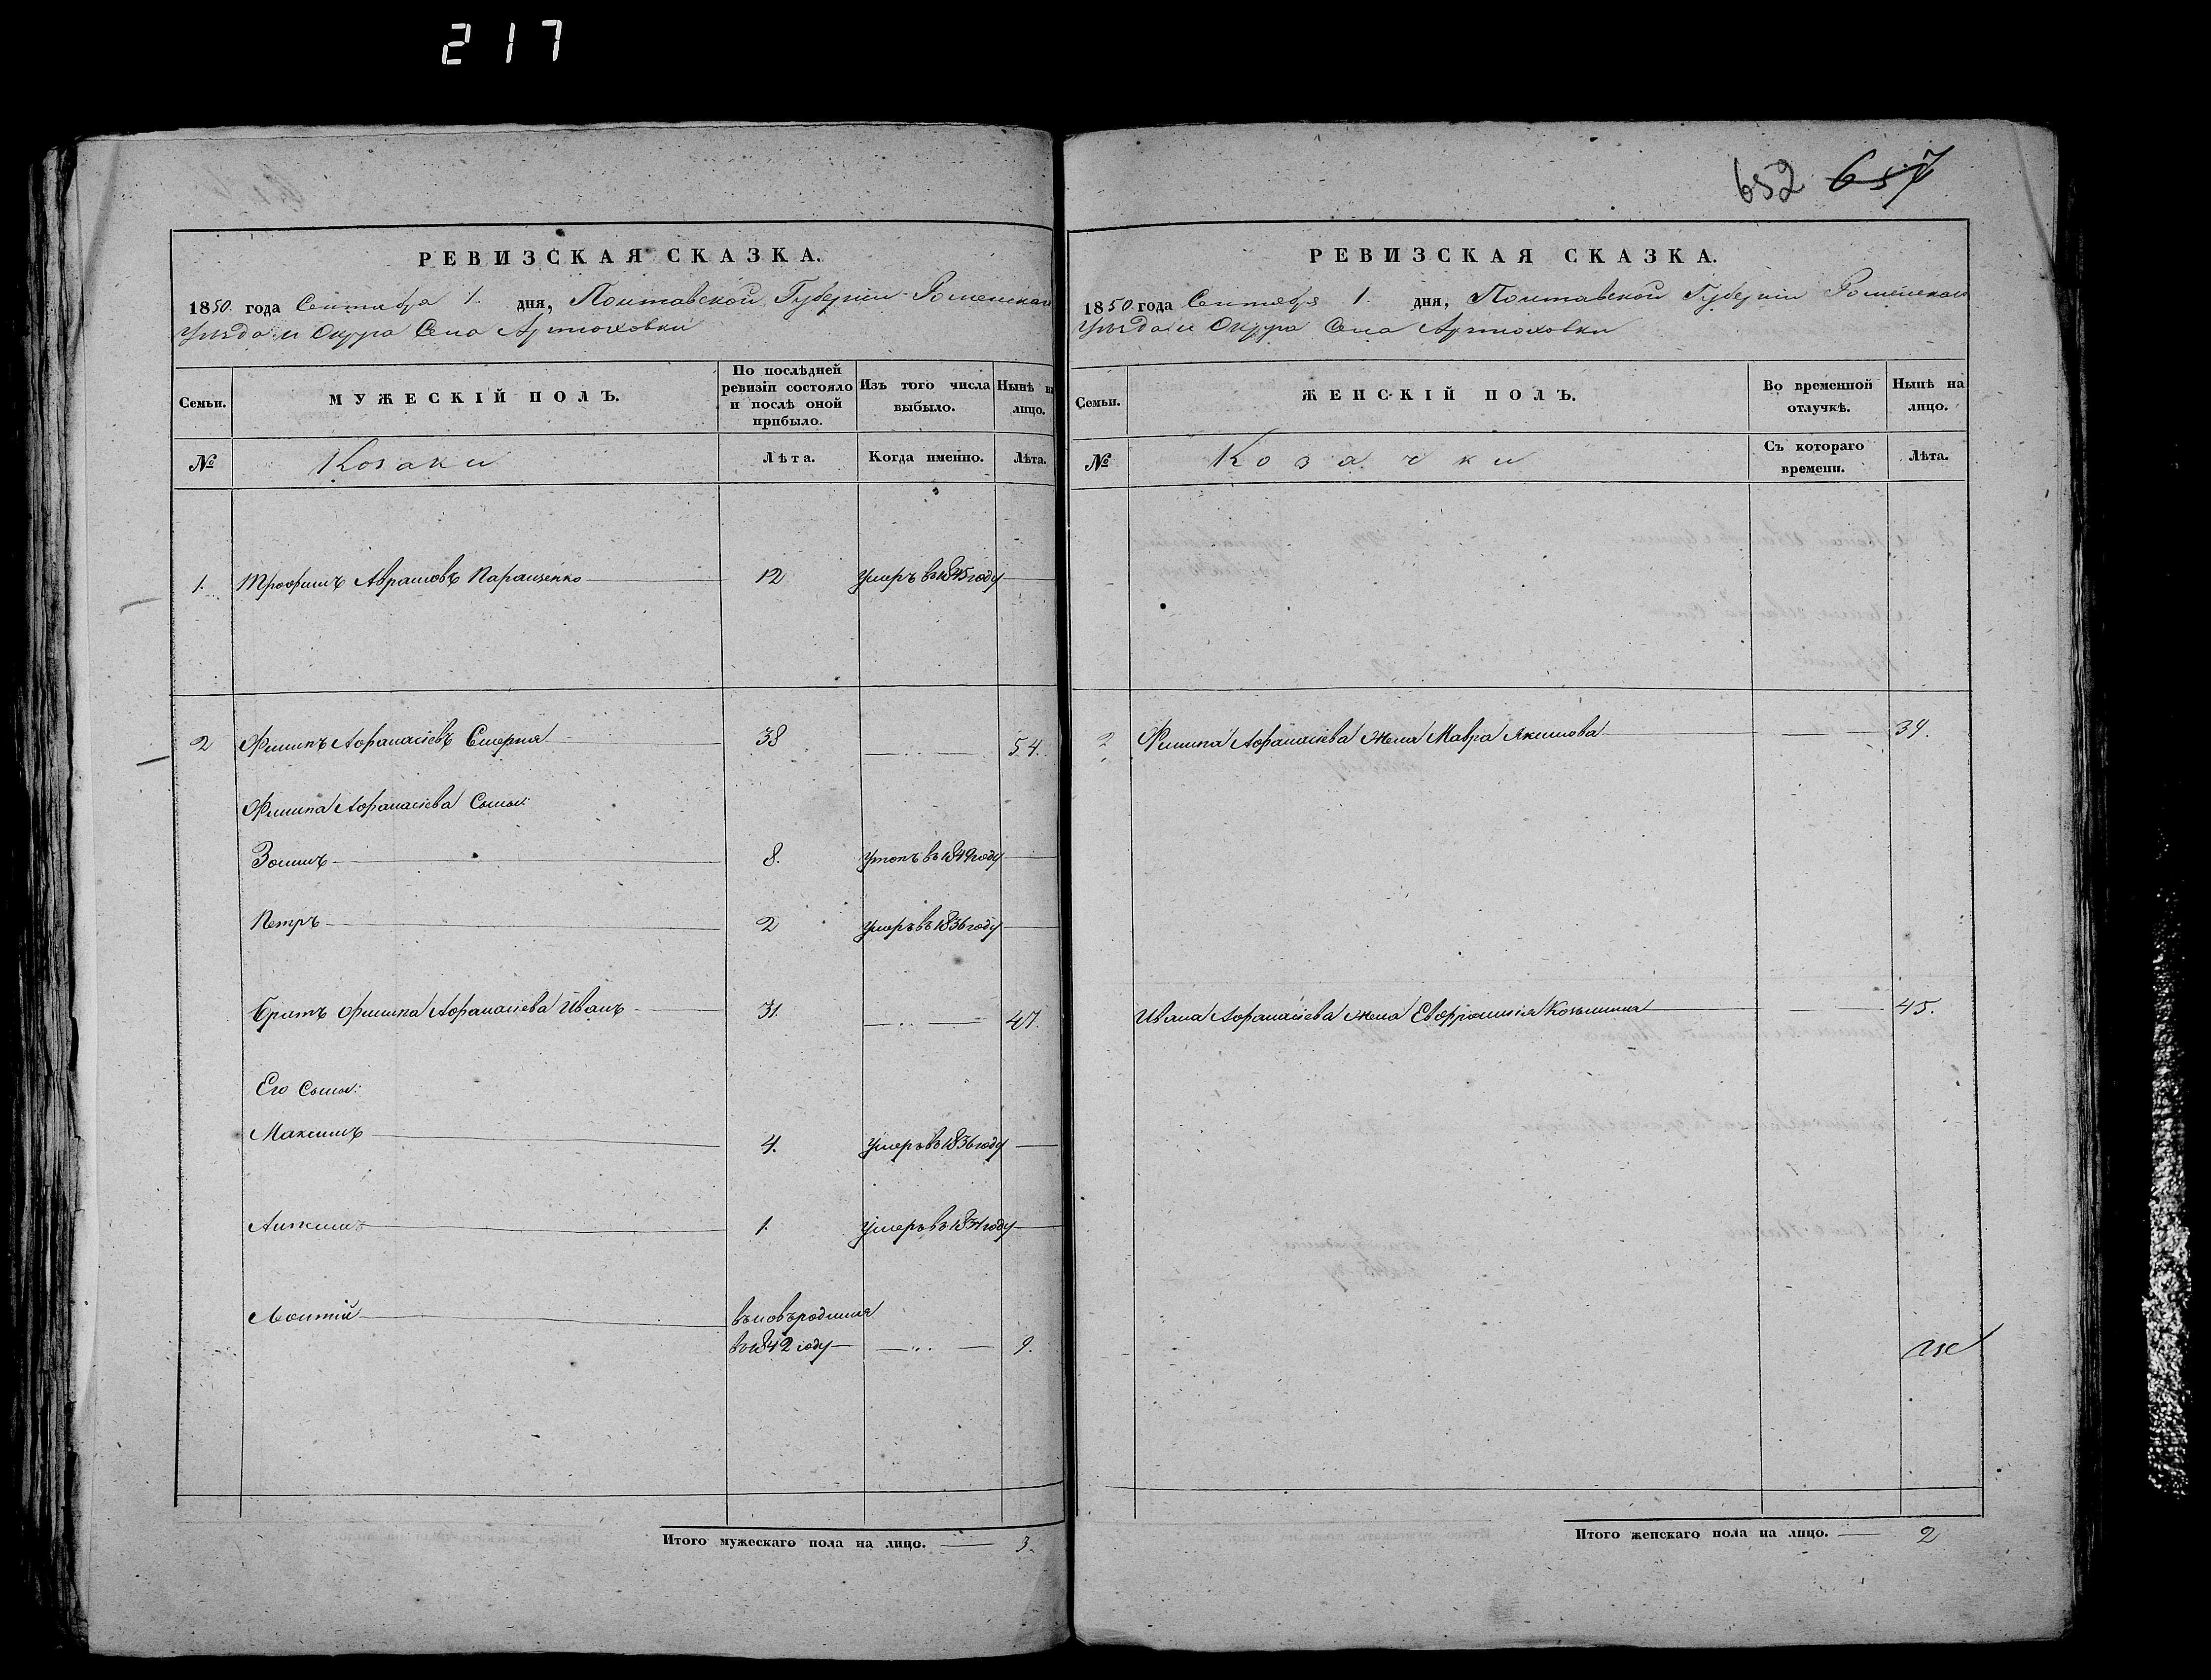 217
РЕВИЗСКАЯ СКАЗКА.
1850. года Сентября 1. дня, Полтавской Губерніи Роменскаго
Уѣзда и Округа Села Артюховки
Семьи.
МУЖЕСКІЙ ПОЛЪ.
По послѣдней ревизіи состояло и послѣ оной прибыло.
Изъ того числа выбыло.
Нынѣ на лицо.
№
Козаки
Лѣта.
Когда именно.
Лѣта.
1. Трофимъ Авраамовъ 12 Умеръ въ 1845 году
2 Филипъ Афанасіевъ 38 54.
Филипа Афанасіева Сыны:
Зосимъ 8. Утопъ въ 1849 году
Петръ 2 Умеръ въ 1836 году
Братъ Филипа Афанасіева Иванъ 31. 47.
Его Сыны:
Максимъ 4. Умеръ въ 1836 году
1. Умеръ въ году
Леонтій
въ 1842 году 9.
Итого мужескаго пола на лицо. 3.
652 657
РЕВИЗСКАЯ СКАЗКА.
1850. года Сентября 1. дня, Полтавской Губерніи Роменскаго
Уѣзда и Округа Села Артюховки
Семьи.
ЖЕНСКІЙ ПОЛЪ.
Во временной отлучкѣ.
Нынѣ на лицо.
№
Козачки
Съ котораго времени.
Лѣта.
2 Филипа Афанасіева жена Мавра Якимова 34.
Ивана Афанасіева жена Евфросинія Козьмина 45.
Итого женскаго пола на лицо. 2